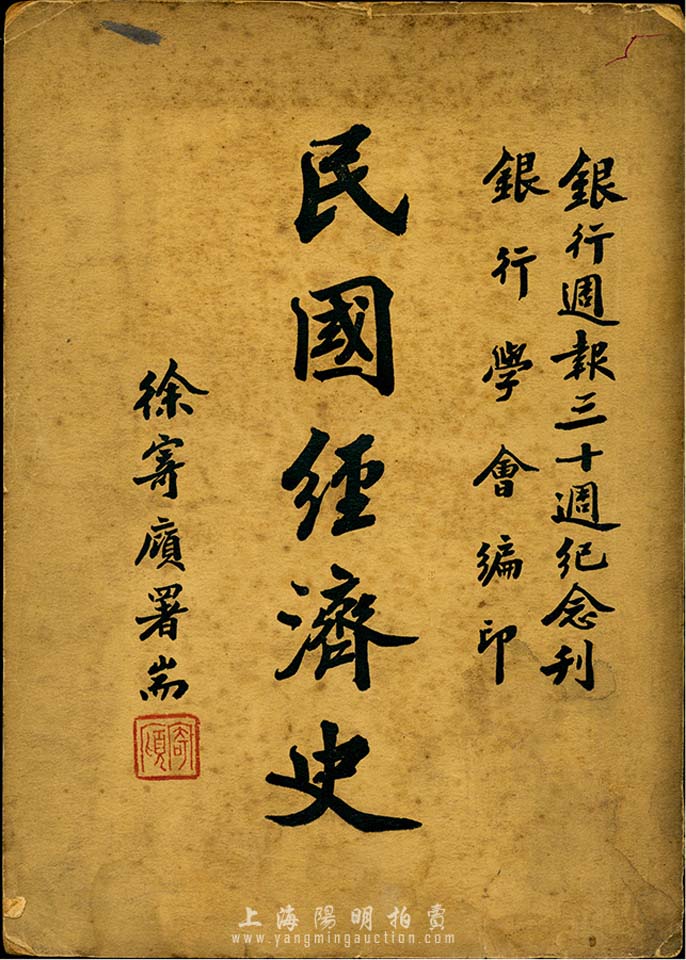 銀行週報三十週紀念刊
銀行學會編印
民國經濟史
徐寄廎署耑
寄廎
上海陽明拍賣
www.yangmingauction.com